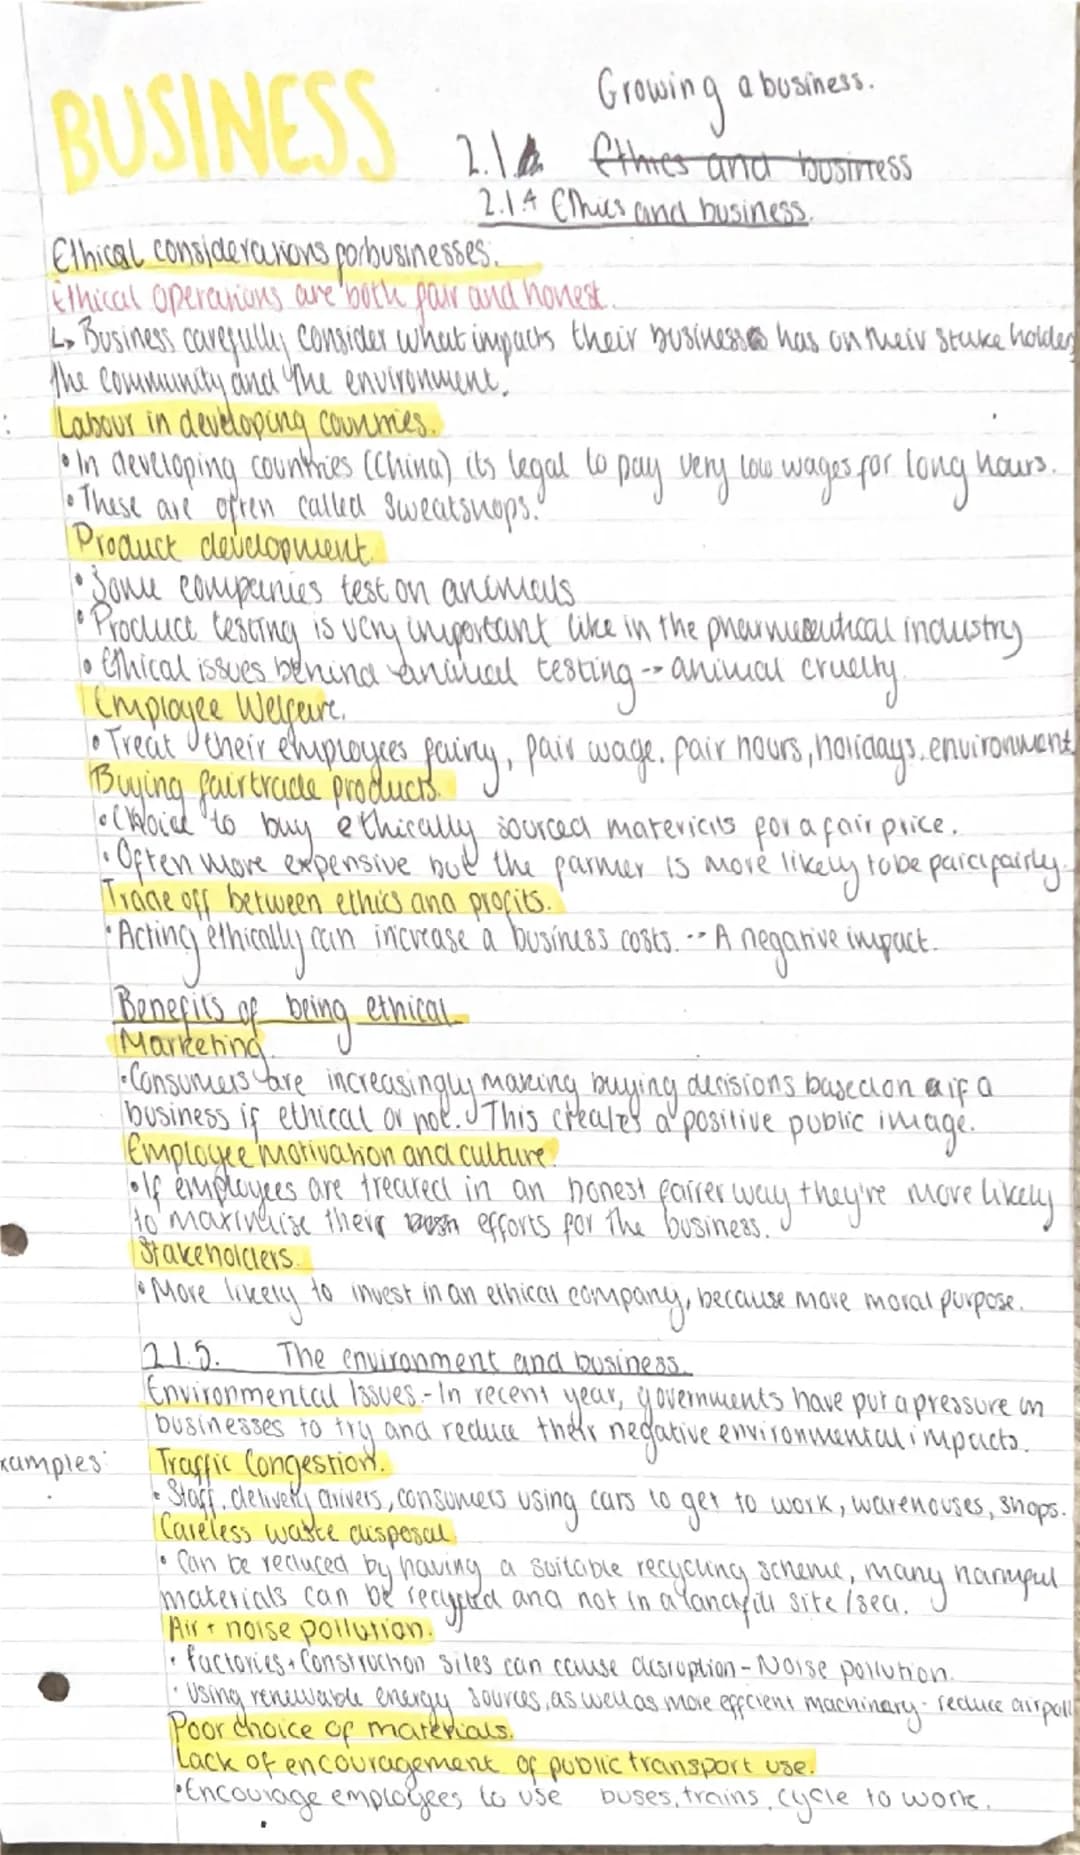 BUSINESS
Growing a business.
2.1 Ethics and business
2.1.4 Ethics and business.
Ethical considerations for businesses.
Ethical Operations are both fair and honest.
↳ Business carefully consider what impacts their business has on their stake holders
the community and the environment.
Labour in developing countries.
• In developing countries (China) its legal to pay very low wages for long hours.
• These are often called sweatshops.
Product development.
• Some companies test on animals
• Product testing is very important like in the pharmaceutical industry
• Ethical issues behind animal testing --> animal cruelty.
Employee Welfare.
• Treat their employees fairly, fair wage, fair hours, holidays, environment
Buying fairtrade products.
• Choice to buy ethically sourced materials for a fair price.
• Often more expensive but the farmer is more likely to be paid fairly.
Trade off between ethics and profits.
• Acting ethically can increase a business costs. --> A negative impact.
Benefits of being ethical
Marketing.
• Consumers are increasingly making buying decisions based on if a
business if ethical or not. This creates a positive public image.
Employee motivation and culture.
• If employees are treated in an honest fairer way they're more likely
to maximise their efforts for the business.
Stakeholders.
• More likely to invest in an ethical company, because more moral purpose.
2.1.5. The environment and business.
Environmental Issues - In recent year, governments have put a pressure on
businesses to try and reduce their negative environmental impacts.
xamples:
Traffic Congestion.
• Staff, delivery drivers, consumers using cars to get to work, warehouses, shops.
Careless waste disposal
• Can be reduced by having a suitable recycling scheme, many harmful
materials can be recycled and not in a landfill site / sea.
Air + noise pollution.
• factories + Construction sites can cause disruption - Noise pollution.
• Using renewable energy sources, as well as more effcient machinery - reduce air poll
Poor choice of materials.
Lack of encouragement of public transport use.
• Encourage employees to use buses, trains, cycle to work.